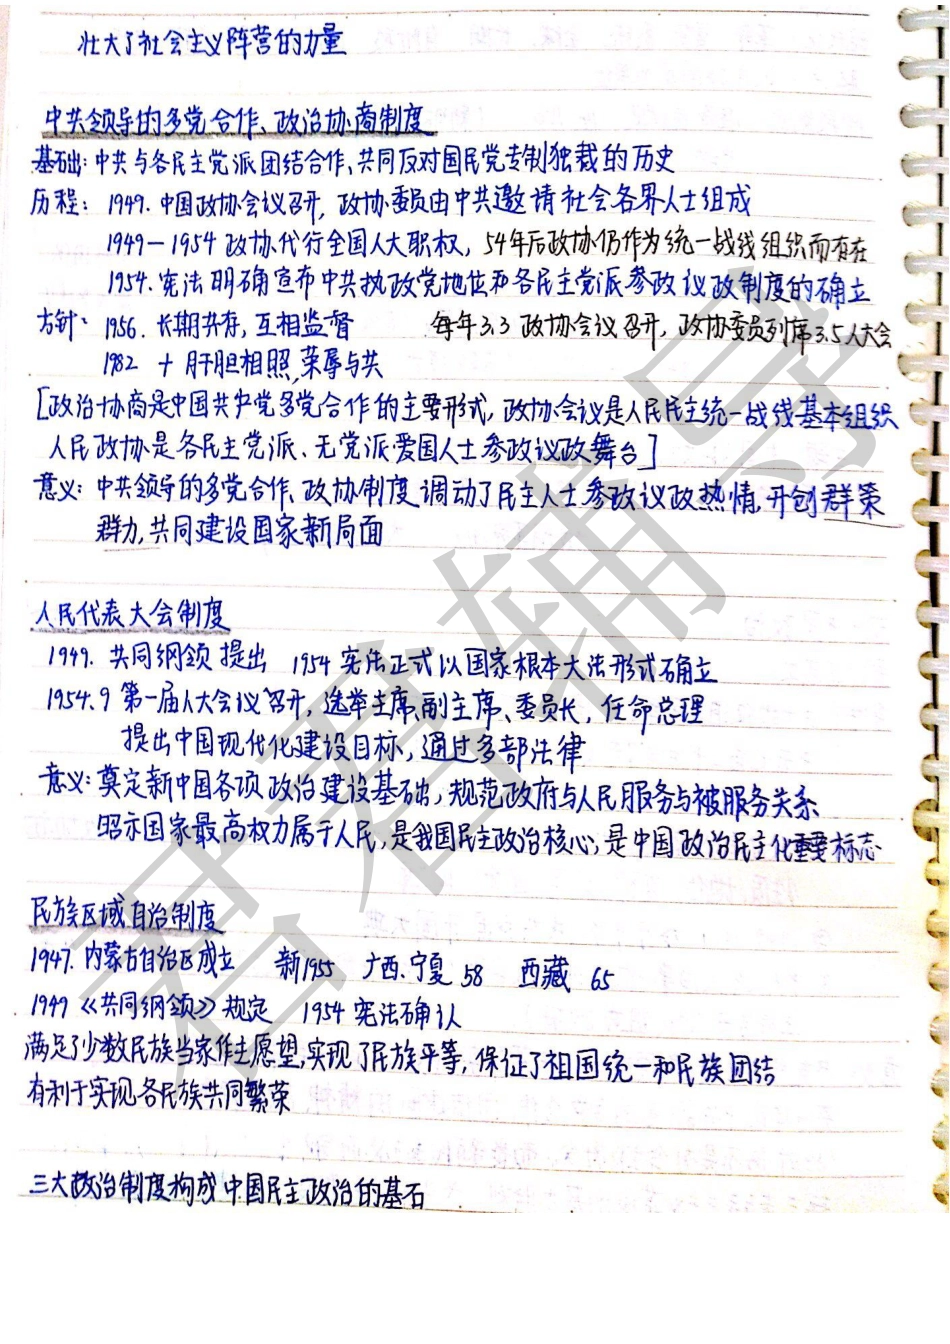 壮大了社会主义阵营的力量
中共领导的多党合作、政治协商制度
基础:中共与各民主党派团结合作、共同反对国民党专制独裁的历史
历程:1949.中国政协会议召开,政协委员由中共邀请社会各界人士组成
1949-1954政协代行全国人大职权,54年后政协仍作为统一战线组织而存在
1954.宪法明确宣布中共执政党地位和各民主党派参政议政制度的确立
方针、1956.长期共存,互相监督 每年3.3政协会议召开,政协委员列席3.5人大会
1982 + 肝胆相照,荣辱与共
[政治协商是中国共产党多党合作的主要形式,政协会议是人民民主统一战线基本组织
人民政协是各民主党派、无党派爱国人士参政议政舞台]
意义:中共领导的多党合作、政协制度调动了民主人士参政议政热情,开创群策
群力,共同建设国家新局面
人民代表大会制度
1949.共同纲领提出 1954宪法正式以国家根本大法形式确立
1954.9第一届人大会议召开,选举主席、副主席、委员长,任命总理
提出中国现代化建设目标,通过多部法律
意义:奠定新中国各项政治建设基础,规范政府与人民服务与被服务关系
昭示国家最高权力属于人民,是我国民主政治核心,是中国政治民主化重要标志
民族区域自治制度
1947.内蒙古自治区成立 新1955 广西、宁夏58 西藏65
1949《共同纲领》规定 1954宪法确认
满足了少数民族当家作主愿望,实现了民族平等,保证了祖国统一和民族团结
有利于实现各民族共同繁荣
三大政治制度构成中国民主政治的基石
君君辅导